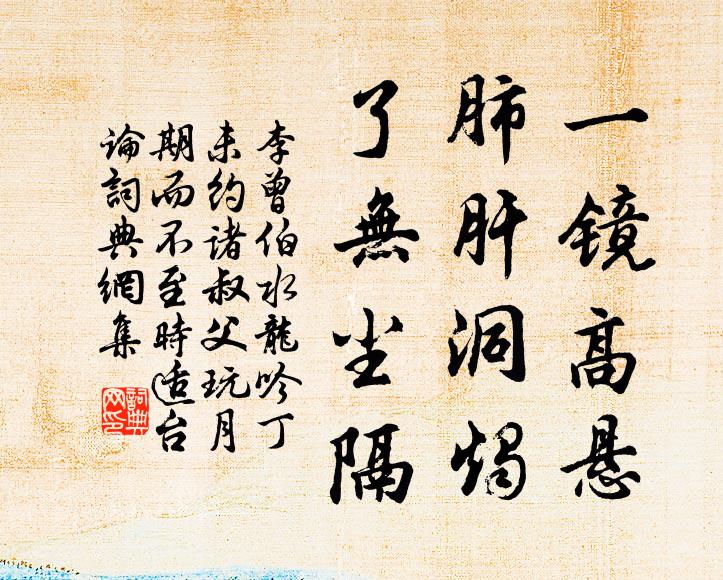 一镜高悬
肺肝洞烛
了無尘隔
李曾伯水龍吟丁
未约诸叔父玩月
期而不至時适台
論詞典網集
詞典
网印